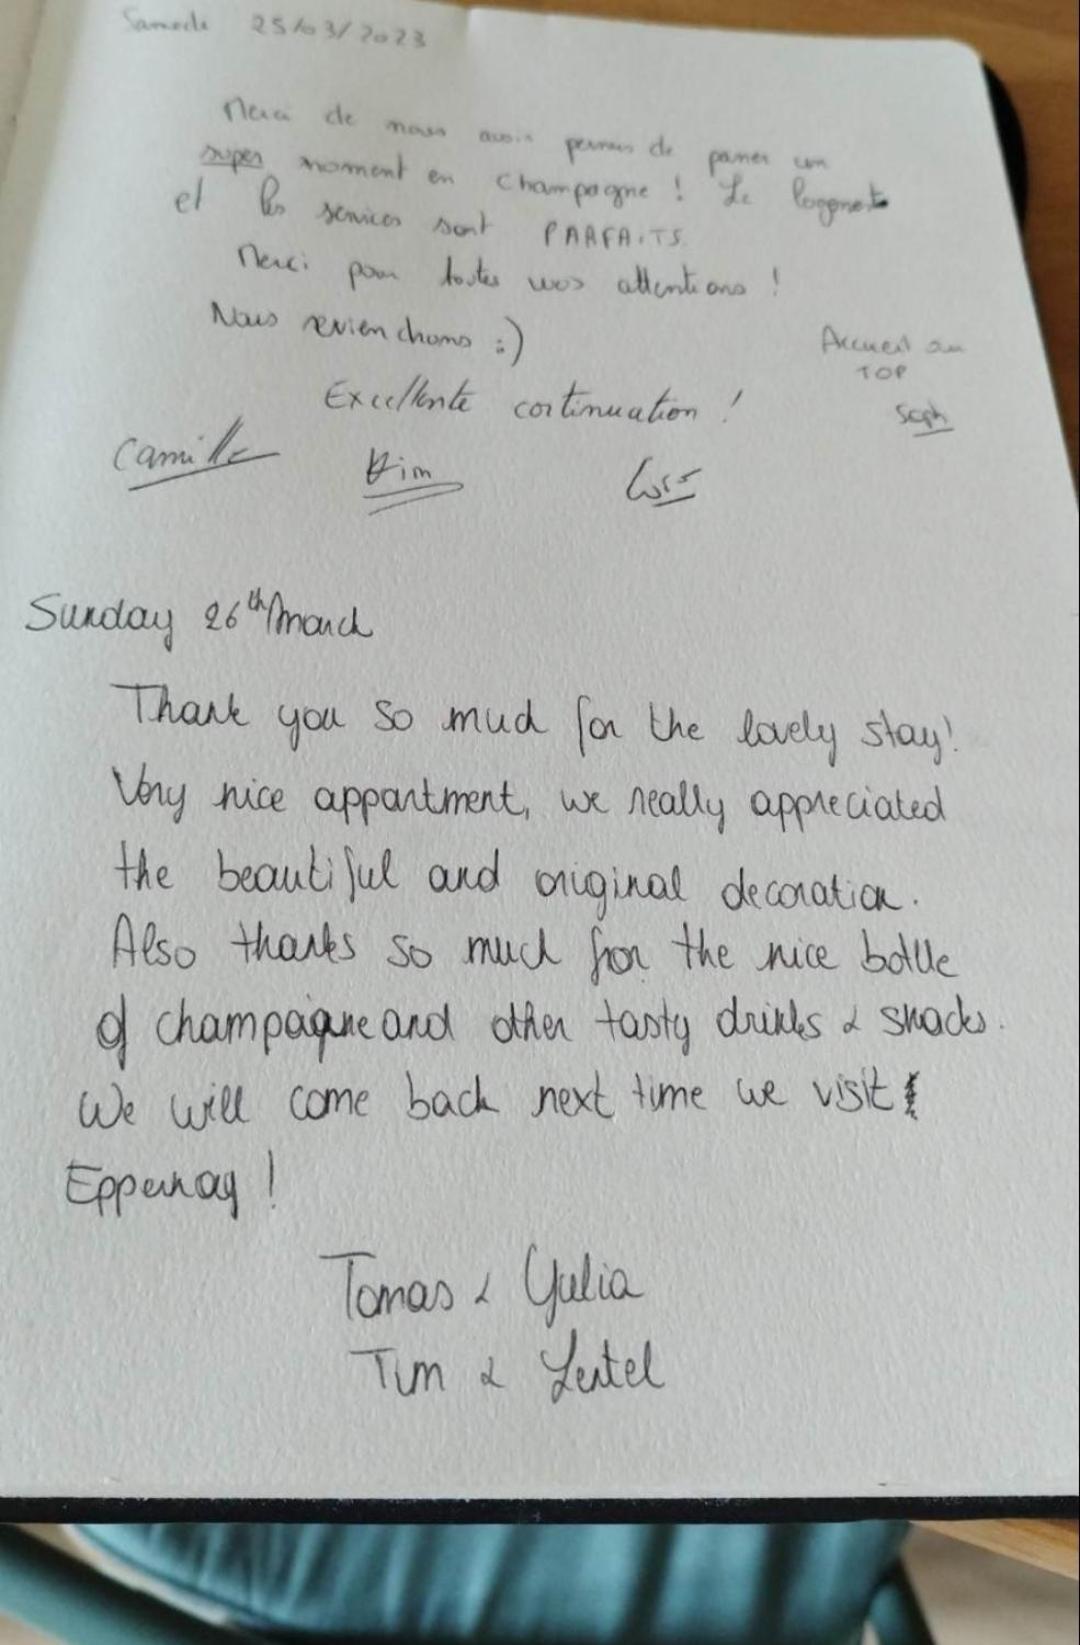 Samedi 25/03/2023
Merci de nous avoir permis de passer un
super moment en Champagne ! Le logement
et les services sont PARFAITS.
Merci pour toutes vos attentions !
Nous reviendrons :)
Accueil au
TOP
Soph
Excellente continuation !
Camille Kim
Sunday 26th March
Thank you so much for the lovely stay!
Very nice appartment, we really appreciated
the beautiful and original decoration.
Also thanks so much for the nice bottle
of champaigne and other tasty drinks & snacks.
We will come back next time we visit
Eppernay !
Tomas & Yulia
Tim & Lentel